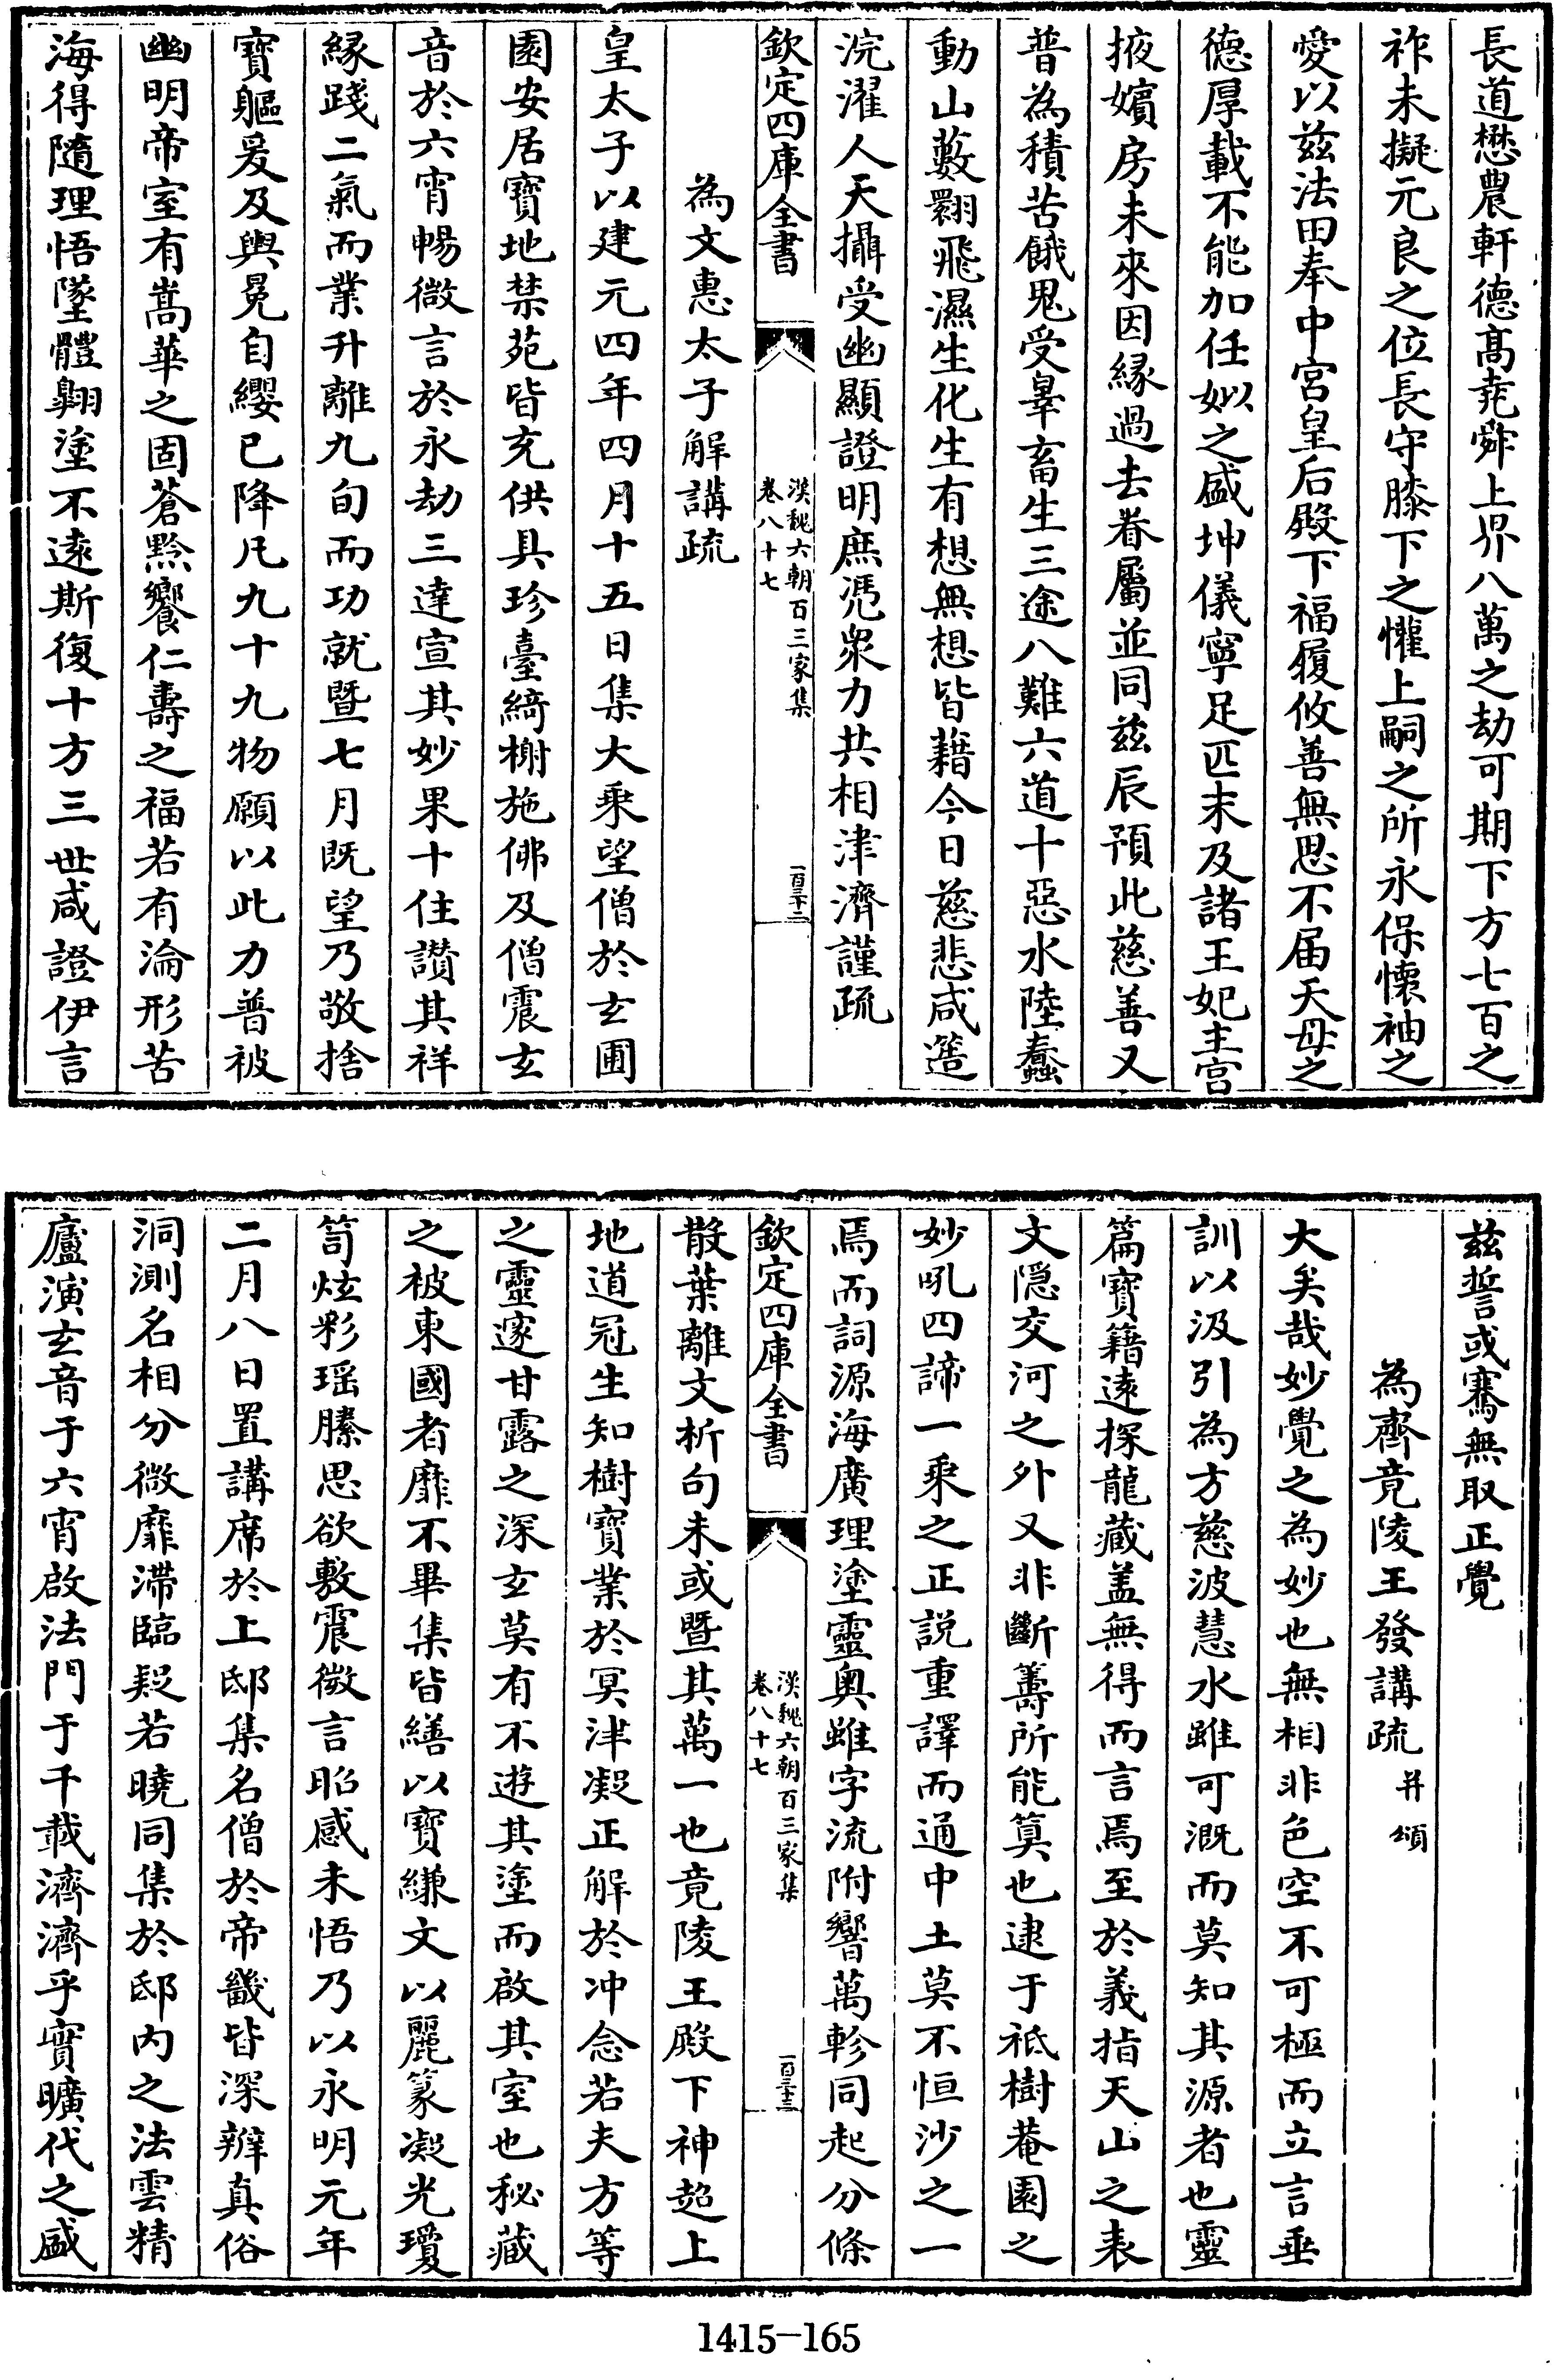 長道懋農軒德髙堯舜上界八萬之劫可期下方七百之
祚未擬元良之位長守膝下之懽上嗣之所永保懷袖之
愛以兹法田奉中宮皇后殿下福履攸善無思不届天母之
徳厚載不能加任姒之盛坤儀寧足匹末及諸王妃主宫
掖嬪房未來因縁過去眷屬並同兹辰預此慈善又
普為積苦餓鬼受辠畜生三途八難六道十惡水陸蠢
動山藪翾飛濕生化生有想無想皆藉今日慈悲咸造
浣濯人天攝受幽顯證明庶憑衆力共相津濟謹疏
欽定四庫全書
漢魏六朝百三家集
卷八十七
一百三十二
為文惠太子解講疏
皇太子以建元四年四月十五日集大乘望僧於玄圃
園安居寳地禁苑皆充供具珍臺綺榭施佛及僧震玄
音於六宵暢微言於永劫三達宣其妙果十住讃其祥
縁踐二氣而業升離九旬而功就暨七月既望乃敬捨
寳軀爰及輿冕自纓已降凡九十九物願以此力普被
幽明帝室有嵩華之固蒼黔饗仁壽之福若有淪形苦
海得隨理悟墜體翱塗不遠斯復十方三世咸證伊言
兹誓或騫無取正覺
為齊竟陵王發講疏并頌
大矣哉妙覺之為妙也無相非色空不可極而立言垂
訓以汲引為方慈波慧水雖可溉而莫知其源者也靈
篇寳籍遠探龍藏盖無得而言焉至於義指天山之表
文隠交河之外又非斷籌所能筭也逮于祗樹菴園之
妙吼四諦一乘之正説重譯而通中土莫不恒沙之一
焉而詞源海廣理塗靈奥雖字流附響萬軫同起分條
欽定四庫全書
漢魏六朝百三家集
卷八十七
一百三十三
散葉離文析句未或暨其萬一也竟陵王殿下神超上
地道冠生知樹寳業於冥津凝正解於冲念若夫方等
之靈邃甘露之深玄莫有不遊其塗而啟其室也秘藏
之被東國者靡不畢集皆繕以寳縑文以麗篆凝光瓊
笥炫彩瑶縢思欲敷震微言昭感未悟乃以永明元年
二月八日置講席於上邸集名僧於帝畿皆深辨真俗
洞測名相分微靡滯臨疑若曉同集於邸内之法雲精
廬演玄音于六宵啟法門于千載濟濟乎實曠代之盛
1415-165